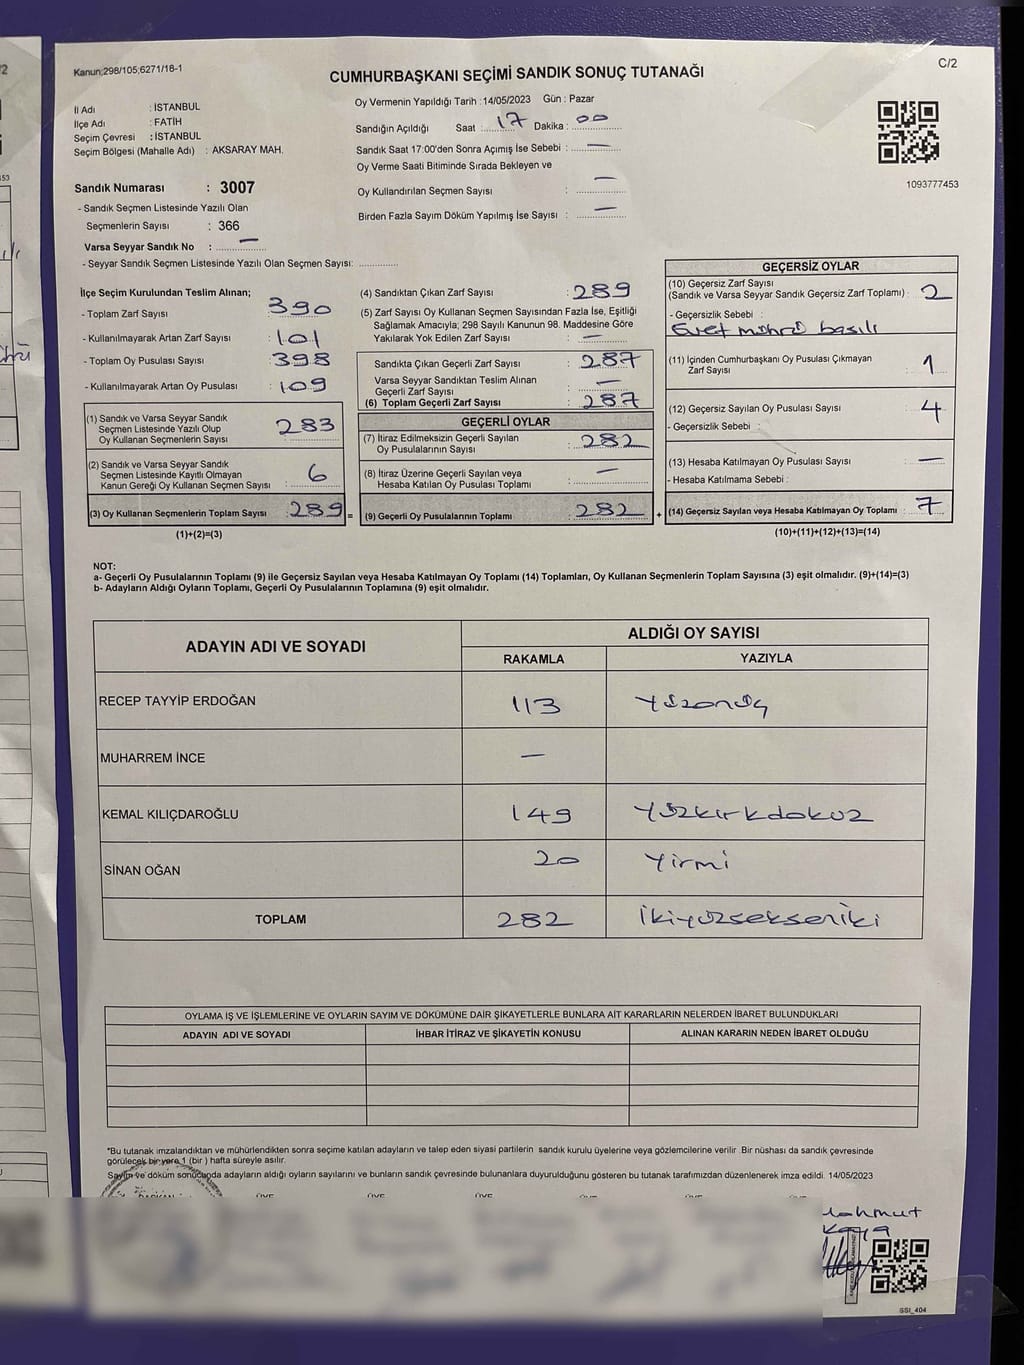 Kanun;298/105;6271/18-1
C/2
CUMHURBAŞKANI SEÇİMİ SANDIK SONUÇ TUTANAĞI
İl Adı : İSTANBUL
İlçe Adı : FATİH
Seçim Çevresi : İSTANBUL
Seçim Bölgesi (Mahalle Adı) : AKSARAY MAH.
Oy Vermenin Yapıldığı Tarih :14/05/2023 Gün : Pazar
Sandığın Açıldığı Saat : 17 Dakika : 00
Sandık Saat 17:00'den Sonra Açımış İse Sebebi : —
Oy Verme Saati Bitiminde Sırada Bekleyen ve
Oy Kullandırılan Seçmen Sayısı : —
Birden Fazla Sayım Döküm Yapılmış İse Sayısı : —
1093777453
Sandık Numarası : 3007
- Sandık Seçmen Listesinde Yazılı Olan
Seçmenlerin Sayısı : 366
Varsa Seyyar Sandık No : —
- Seyyar Sandık Seçmen Listesinde Yazılı Olan Seçmen Sayısı:
İlçe Seçim Kurulundan Teslim Alınan;
- Toplam Zarf Sayısı : 390
- Kullanılmayarak Artan Zarf Sayısı : 101
- Toplam Oy Pusulası Sayısı : 398
- Kullanılmayarak Artan Oy Pusulası : 109
(1) Sandık ve Varsa Seyyar Sandık
Seçmen Listesinde Yazılı Olup
Oy Kullanan Seçmenlerin Sayısı : 283
(2) Sandık ve Varsa Seyyar Sandık
Seçmen Listesinde Kayıtlı Olmayan
Kanun Gereği Oy Kullanan Seçmen Sayısı : 6
(3) Oy Kullanan Seçmenlerin Toplam Sayısı : 289 =
(1)+(2)=(3)
(4) Sandıktan Çıkan Zarf Sayısı : 289
(5) Zarf Sayısı Oy Kullanan Seçmen Sayısından Fazla İse, Eşitliği
Sağlamak Amacıyla; 298 Sayılı Kanunun 98. Maddesine Göre
Yakılarak Yok Edilen Zarf Sayısı : —
Sandıkta Çıkan Geçerli Zarf Sayısı : 287
Varsa Seyyar Sandıktan Teslim Alınan
Geçerli Zarf Sayısı : —
(6) Toplam Geçerli Zarf Sayısı : 287
GEÇERLİ OYLAR
(7) İtiraz Edilmeksizin Geçerli Sayılan
Oy Pusulalarının Sayısı : 282
(8) İtiraz Üzerine Geçerli Sayılan veya
Hesaba Katılan Oy Pusulası Toplamı : —
(9) Geçerli Oy Pusulalarının Toplamı : 282 +
GEÇERSİZ OYLAR
(10) Geçersiz Zarf Sayısı
(Sandık ve Varsa Seyyar Sandık Geçersiz Zarf Toplamı) : 2
- Geçersizlik Sebebi :
Evet mührü basılı
(11) İçinden Cumhurbaşkanı Oy Pusulası Çıkmayan
Zarf Sayısı : 1
(12) Geçersiz Sayılan Oy Pusulası Sayısı : 4
- Geçersizlik Sebebi :
(13) Hesaba Katılmayan Oy Pusulası Sayısı : —
- Hesaba Katılmama Sebebi :
(14) Geçersiz Sayılan veya Hesaba Katılmayan Oy Toplamı : 7
(10)+(11)+(12)+(13)=(14)
NOT:
a- Geçerli Oy Pusulalarının Toplamı (9) ile Geçersiz Sayılan veya Hesaba Katılmayan Oy Toplamı (14) Toplamları, Oy Kullanan Seçmenlerin Toplam Sayısına (3) eşit olmalıdır. (9)+(14)=(3)
b- Adayların Aldığı Oyların Toplamı, Geçerli Oy Pusulalarının Toplamına (9) eşit olmalıdır.
ADAYIN ADI VE SOYADI ALDIĞI OY SAYISI
RAKAMLA YAZIYLA
RECEP TAYYİP ERDOĞAN 113 Yüzonüç
MUHARREM İNCE —
KEMAL KILIÇDAROĞLU 149 Yüzkırkdokuz
SİNAN OĞAN 20 Yirmi
TOPLAM 282 İkiyüzsekseniki
OYLAMA İŞ VE İŞLEMLERİNE VE OYLARIN SAYIM VE DÖKÜMÜNE DAİR ŞİKAYETLERLE BUNLARA AİT KARARLARIN NELERDEN İBARET BULUNDUKLARI
ADAYIN ADI VE SOYADI İHBAR İTİRAZ VE ŞİKAYETİN KONUSU ALINAN KARARIN NEDEN İBARET OLDUĞU
*Bu tutanak imzalandıktan ve mühürlendikten sonra seçime katılan adayların ve talep eden siyasi partilerin sandık kurulu üyelerine veya gözlemcilerine verilir .Bir nüshası da sandık çevresinde
görülecek bir yere 1 (bir ) hafta süreyle asılır.
Sayım ve döküm sonucunda adayların aldığı oyların sayılarını ve bunların sandık çevresinde bulunanlara duyurulduğunu gösteren bu tutanak tarafımızdan düzenlenerek imza edildi. 14/05/2023
Mahmut
Kaya
SSI_404